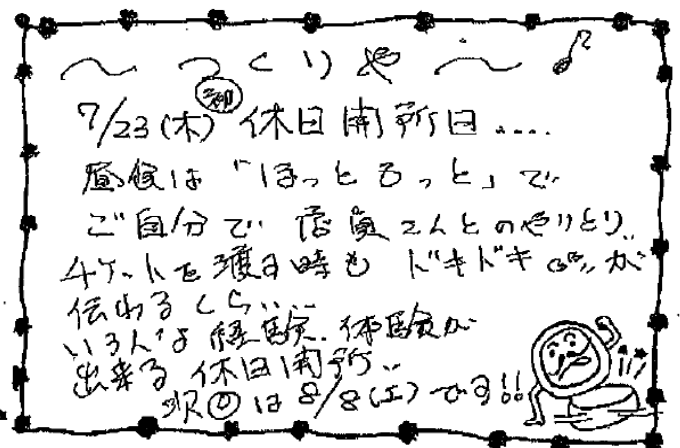 ～つくりや～♪
7/23(木)㊗休日開所日....
昼食は「ほっともっと」で
ご自分で店員さんとのやりとり..
チケットを渡す時もドキドキが
伝わるくらい...
いろんな経験.体験が
出来る休日開所..
次の は8/8(土)です!!